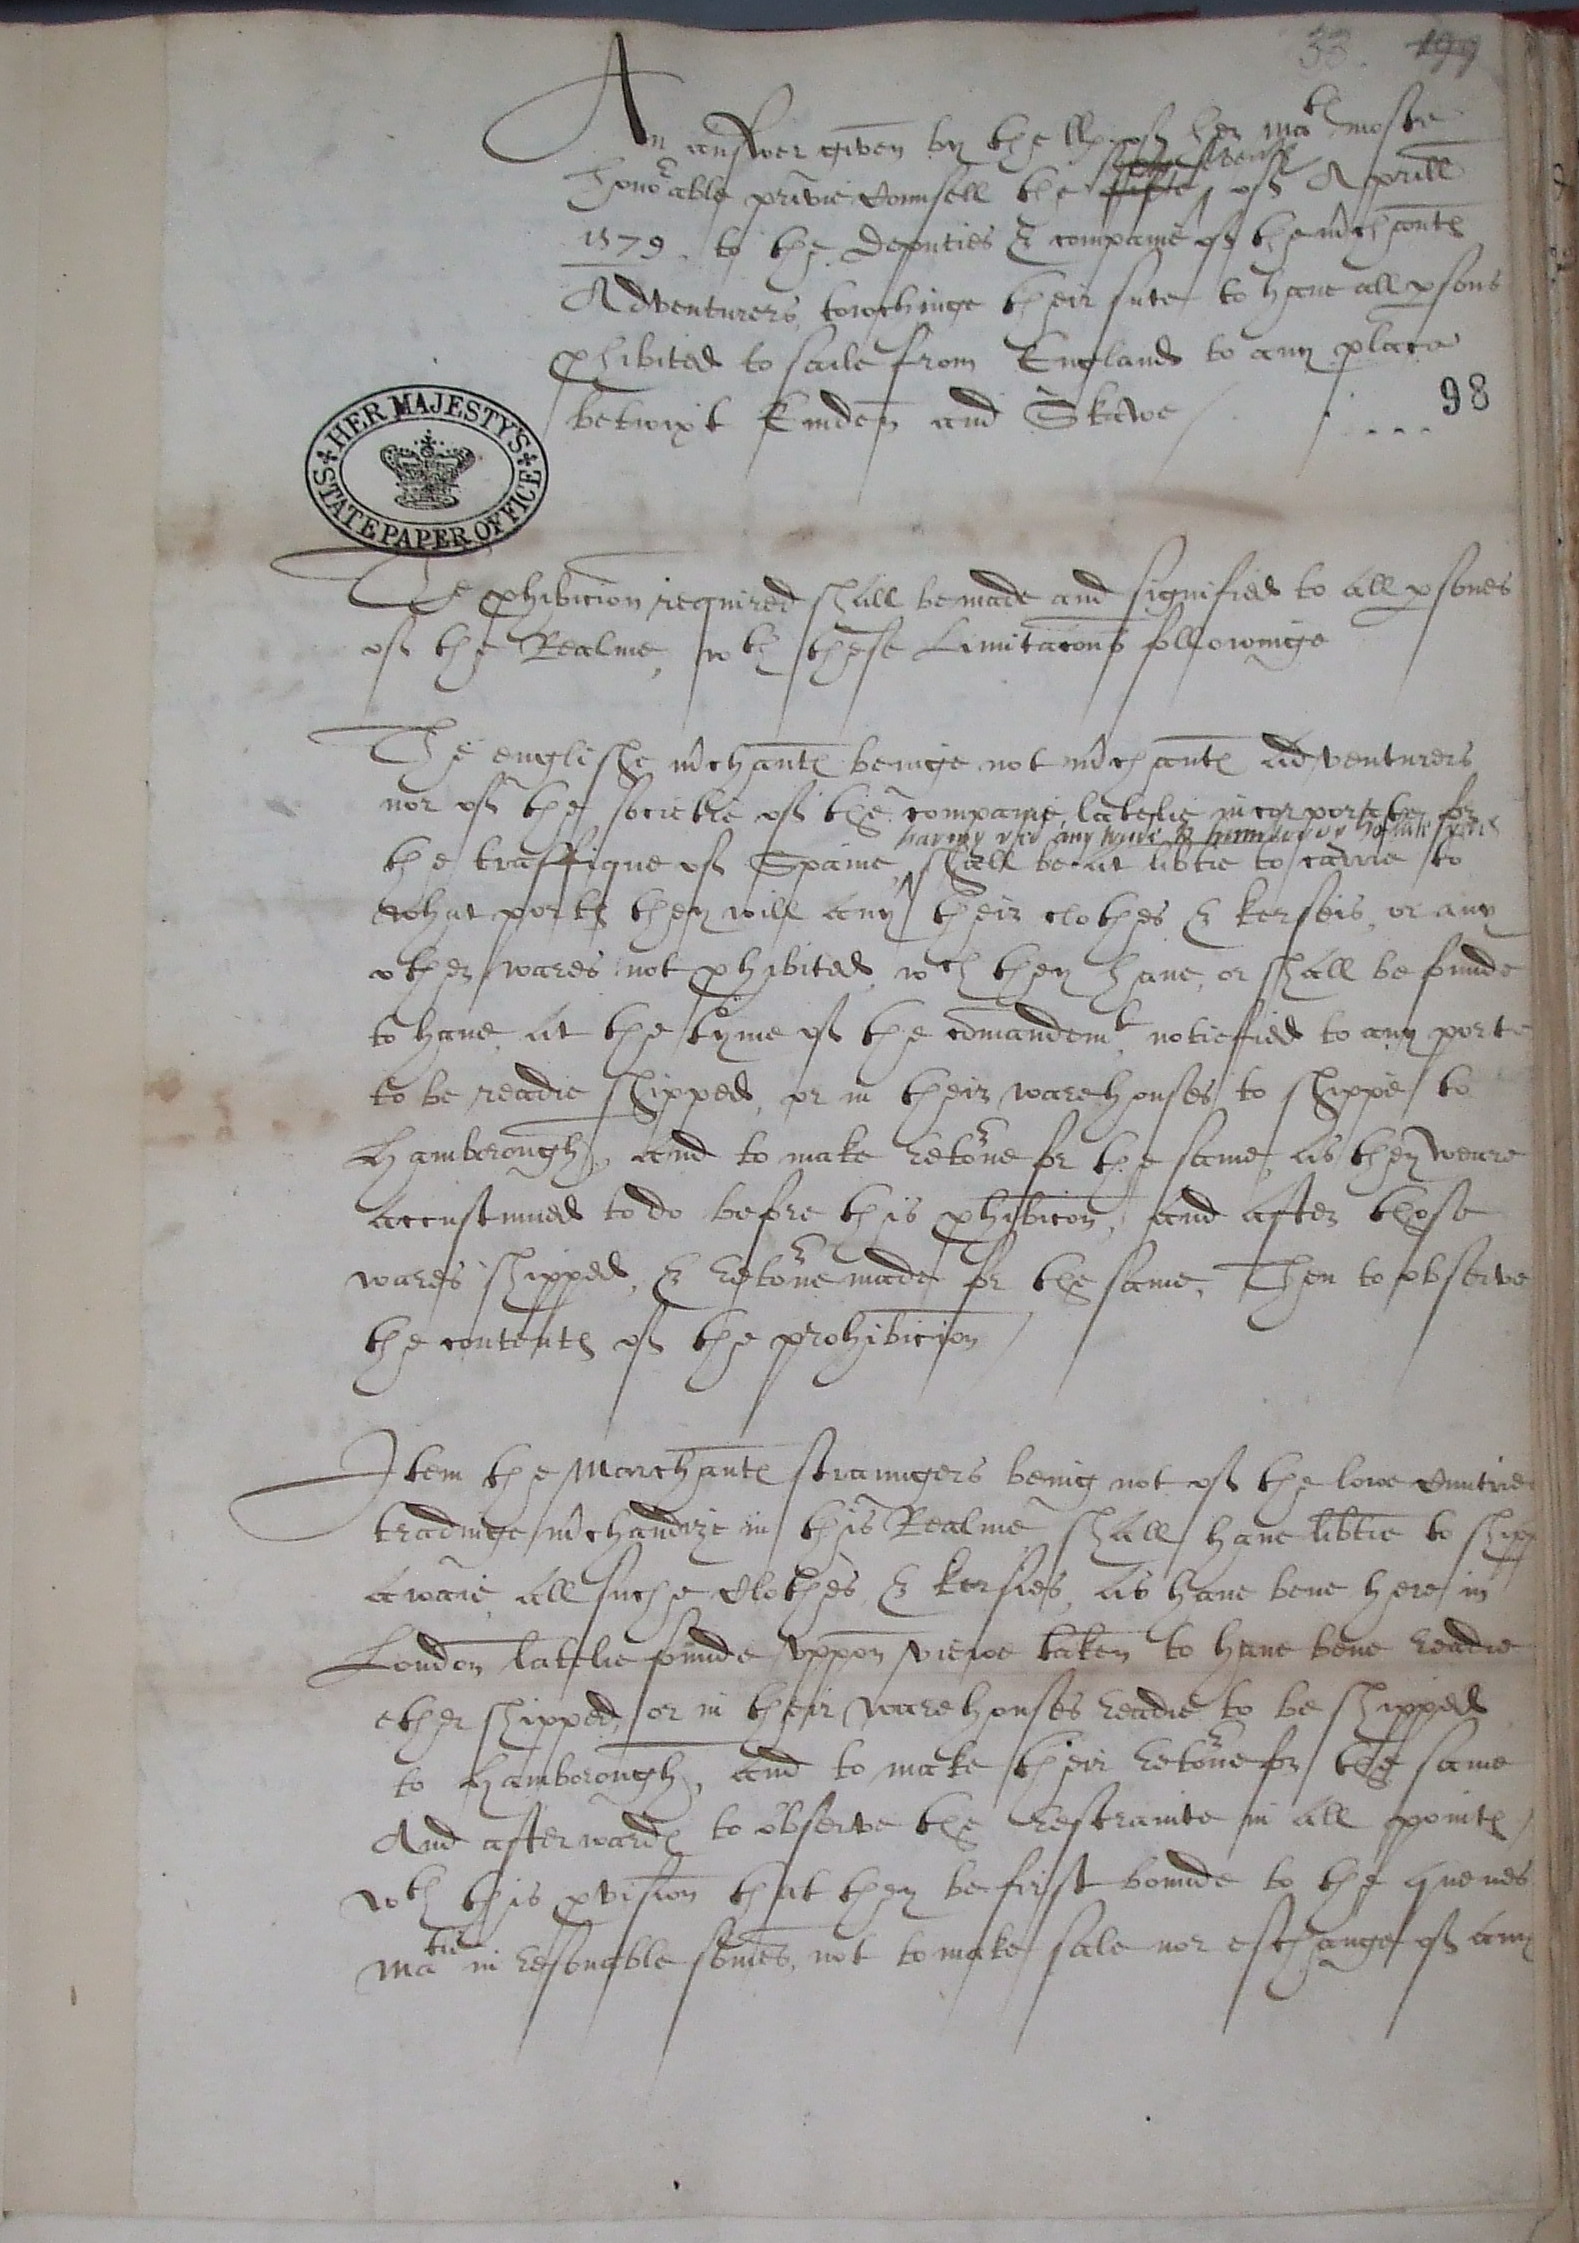 33. 199
An answer given by the ll. of her Matꝭ moste
honorable privie Counsell the fifte of Aprill
1579. to the Deputies & companie of the mʳchantꝭ
Adventurers towchinge their sute to haue all ꝑsons
ꝓhibited to saile from England to any place
betwixt Emden and Skawe
98
HER MAJESTY'S STATE PAPER OFFICE
The ꝓhibicion required shall be made and signified to all ꝑsones
of the Realme, wᵗʰ these Limitacons followinge
The englishe mʳchantꝭ beinge not mʳchantꝭ Adventurers
nor of the societie of the companie latelie incorporate for
having vsed any trade to hamborough
the traffique of Spaine, shall be at libtie to carrie to
what portꝭ they will any their clothes & kerseis, or any
other wares not ꝓhibited, wᶜʰ they haue, or shall be founde
to haue at the tyme of the cõmandemᵗ notiefied to any porte
to be readie shipped, or in their warehouses to shippe to
Hamborough, and to make retoʳne for the same, as they weare
accustumed to do before this ꝓhibicon, and after those
wares shipped, & retoʳne made for the same, Then to observe
the contentꝭ of the prohibicion
Item the Marchantꝭ straungers being not of the lowe Cuntrie
tradinge mʳchandize in this Realme shall haue libtie to shipp
awaie all suche Clothes & kersies, as haue bene here in
London latelie founde vppon viewe taken to haue bene readie
ether shipped, or in their warehouses readie to be shipped
to Hamborough, and to make their retoʳne for the same
And afterwardꝭ to observe the restrainte in all pointꝭ
wᵗʰ this ꝓvision that they be first bounde to the quenes
Maᵗⁱᵉ in resonable sõmes, not to make sale nor eschange of any